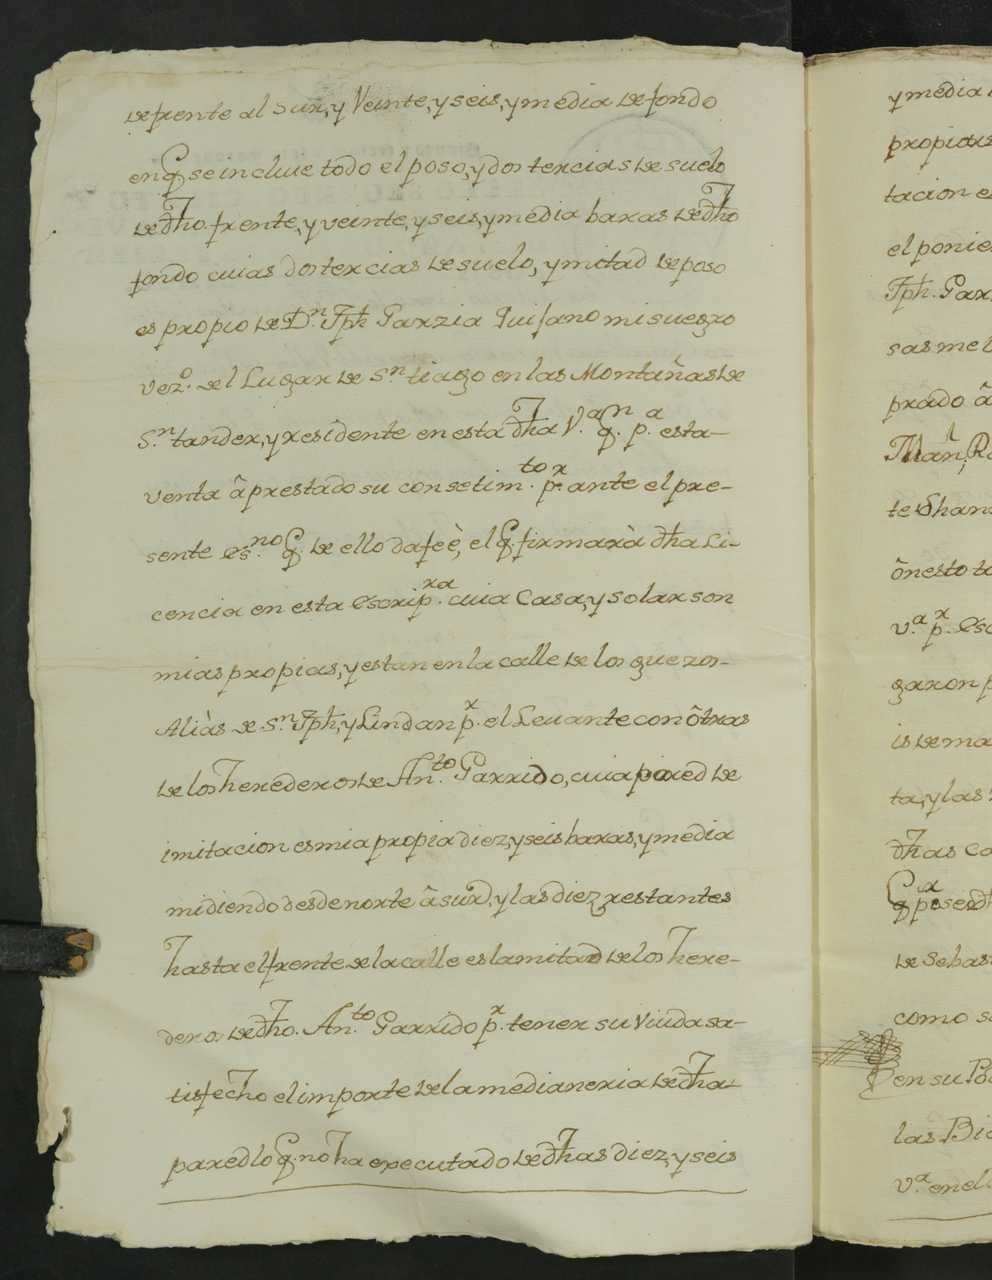 de frente al Sur, y Veinte, y seis, y media de fondo
en q se incluie todo el poso, y dos tercias de suelo
de dho. frente, y veinte, y seis, y media baras de dho
fondo cuias dos tercias de suelo, y mitad de poso
es propio de Dn. Jph Garzia Quisano mi suegro
vezo. del Lugar de Sn. tiago en las Montañas de
Sn. tander, y residente en esta dha Va. qn. pa. esta-
venta â prestado su consetimto. pr. ante el pre-
sente esno. q. de ello da feè, el q. firmarà dha Li-
cencia en esta escripra. cuia Casa, y solar son
mias propias, y estan en la calle de los guezos-
Aliàs de Sn. Jph, y Lindan pr. el Levante con ôtras
de los herederos de Anto. Garrido, cuia pared de
imitacion es mia propia diez, y seis baras, y media
midiendo desde norte â sur, y las diez restantes
hasta el frente de la calle es la mitad de los here-
deros de dho. Anto. Garrido pr. tener su Viuda sa-
tisfecho el importe de la medianeria de dha
pared lo q. no ha executado de dhas diez, y seis
y media
propias
tacion es
el ponie
Jph. Gar
sas me
prado â
Man, Ro
te
ônesto
va. pr. Es
garon p
is de ma
ta, y las
dhas ca
q pr. se
de Sebas
como s
en su Po
las Bi
va. en el